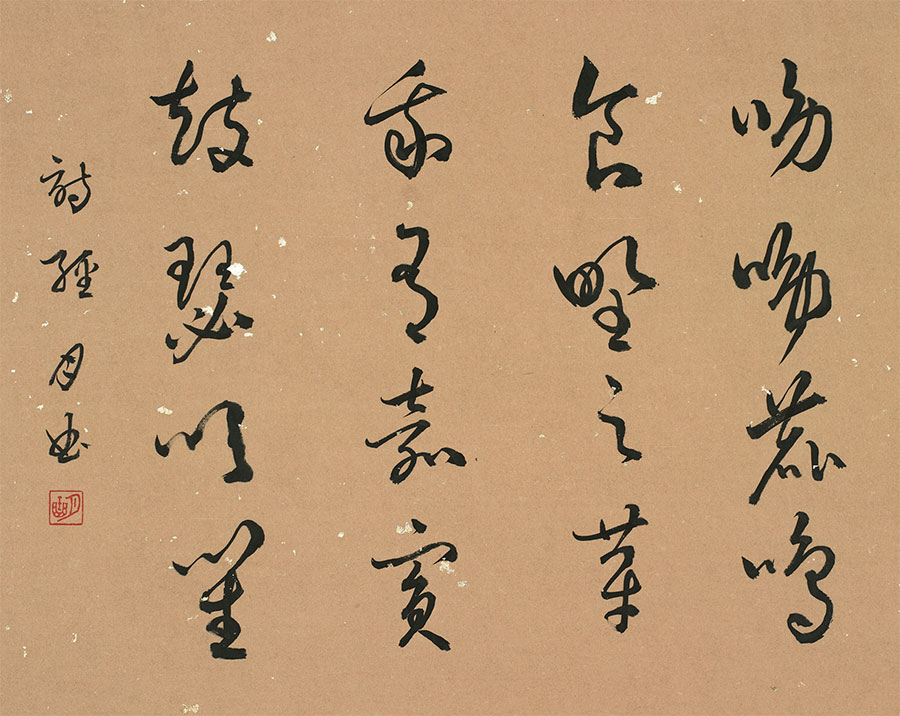 呦呦鹿鳴
食野之苹
我有嘉賓
鼓瑟吹笙
詩經 月